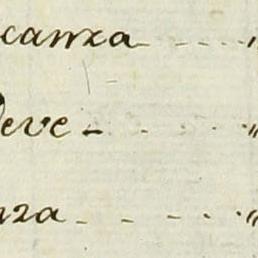 canza - - - - "
Deve - - - - "
nza - - - - "